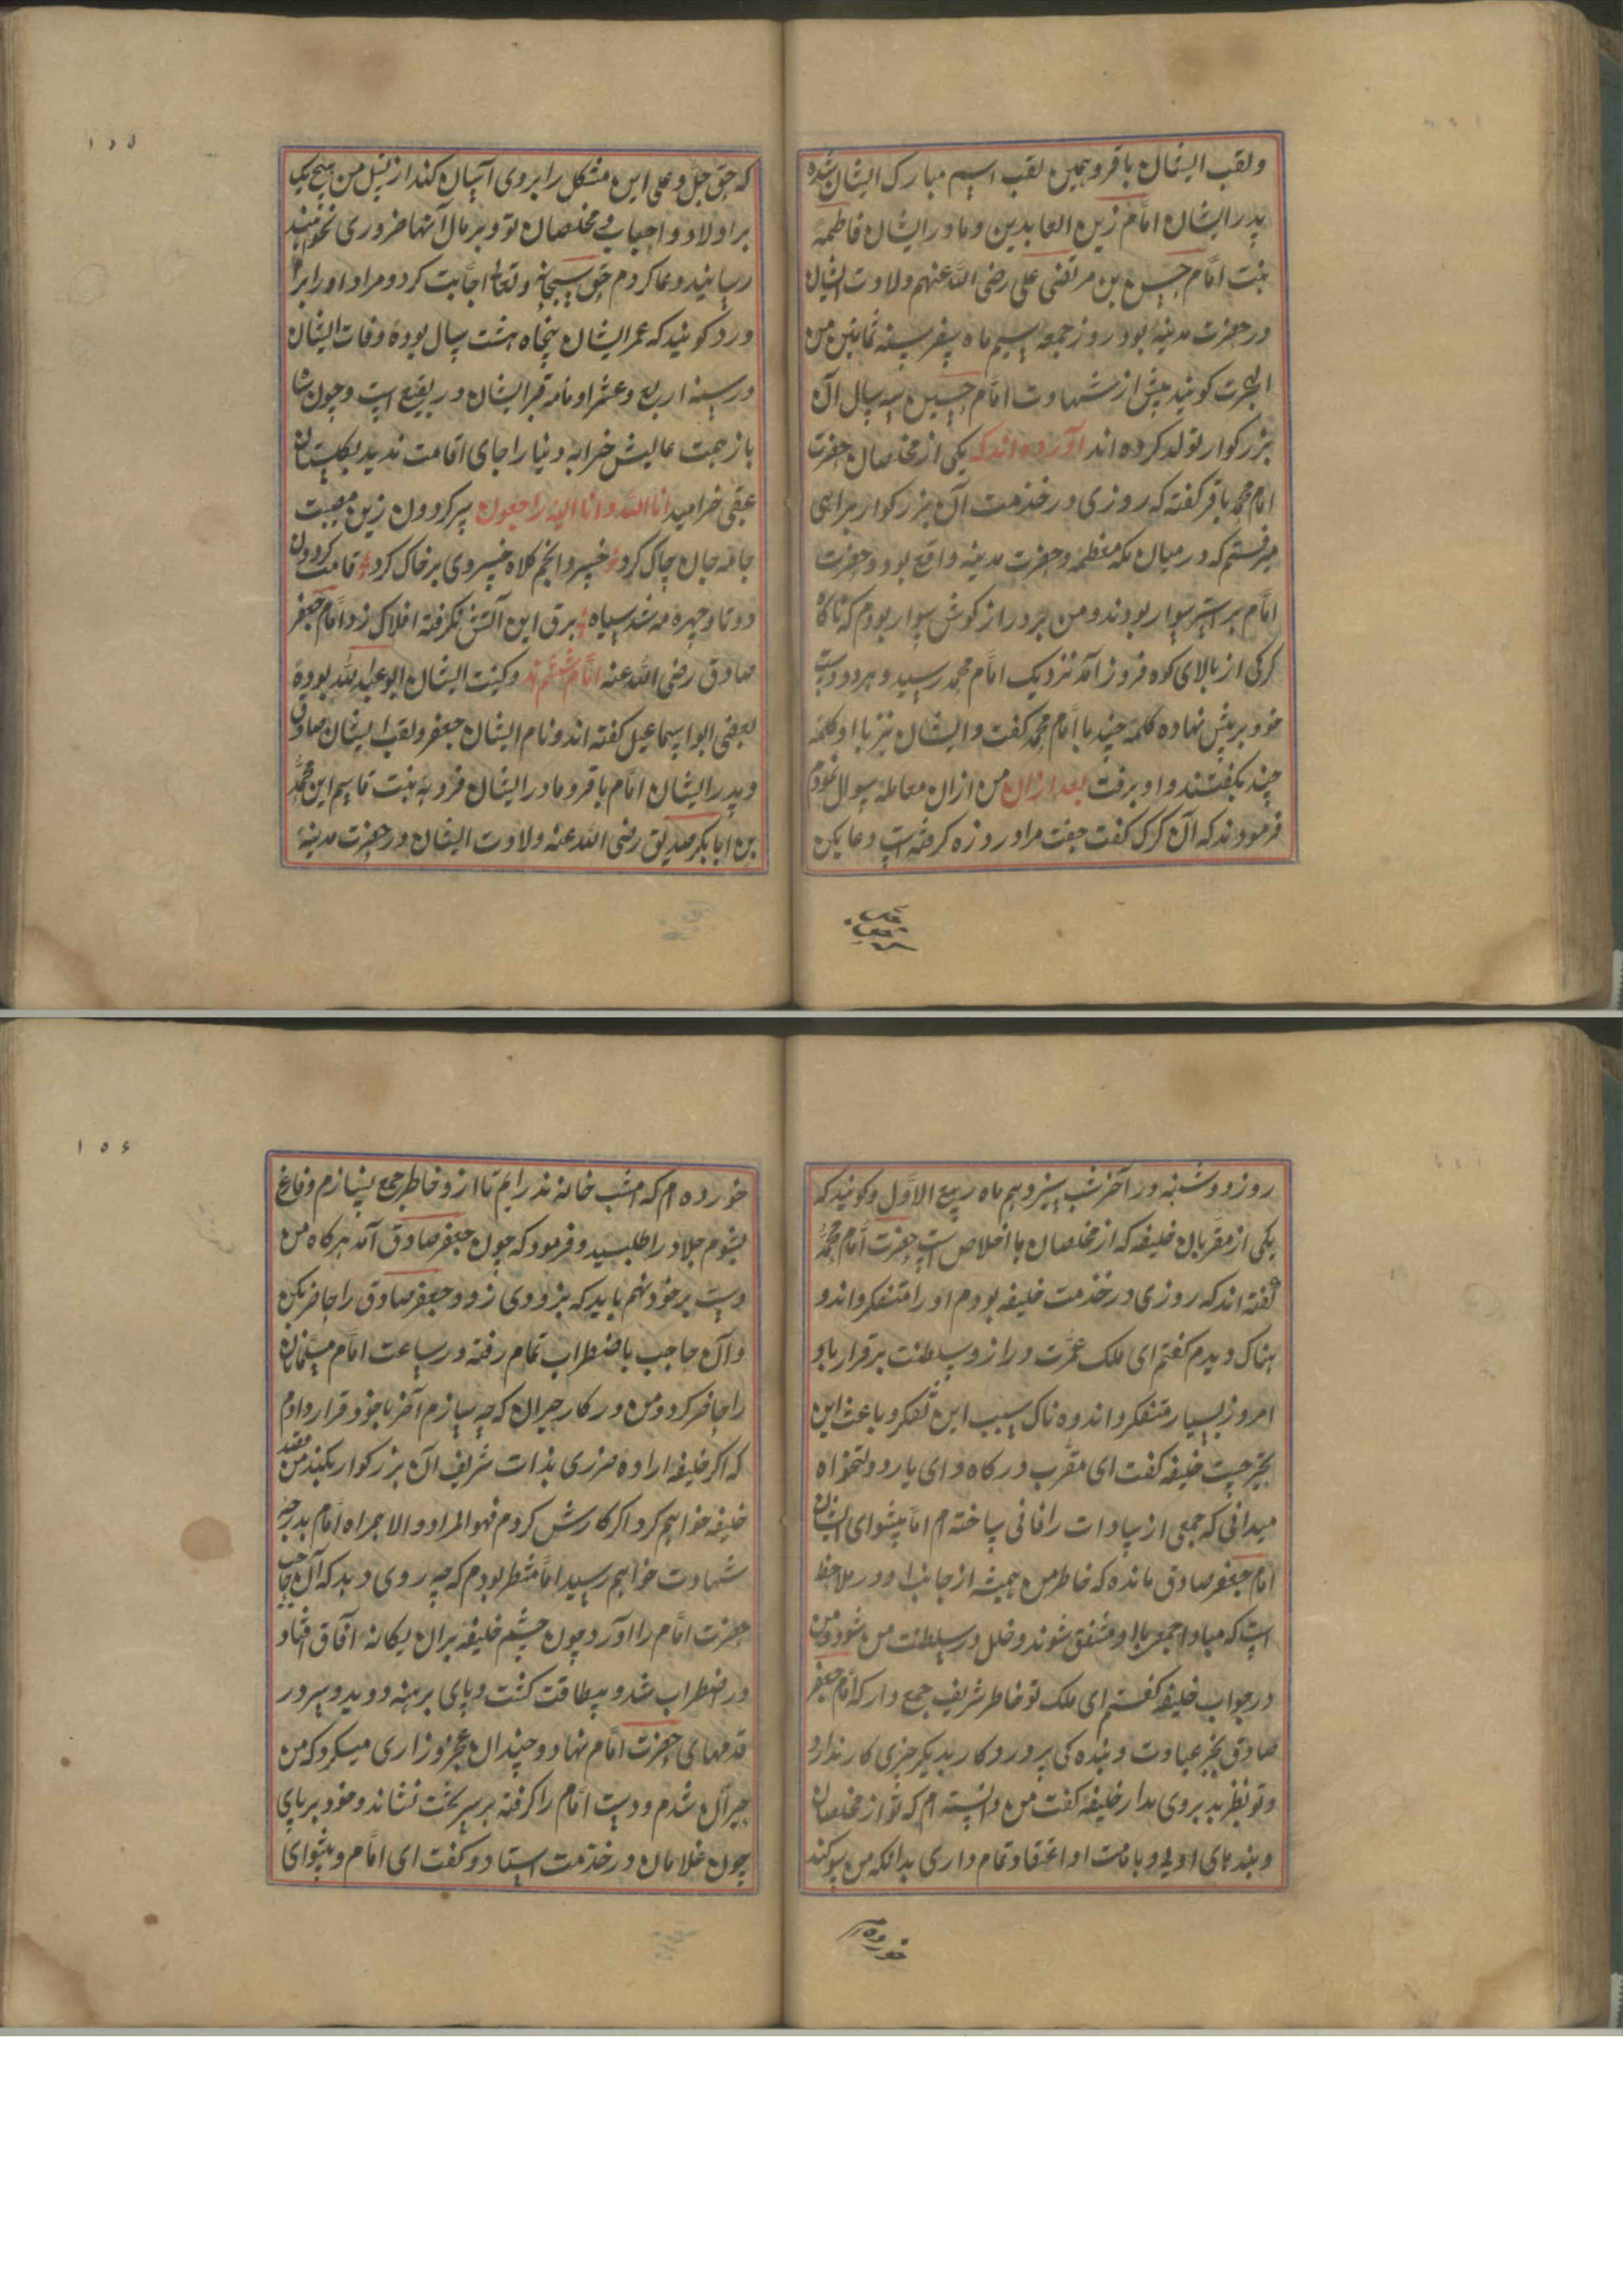 ولقب ایشان باقر و همین لقب اسم مبارک ایشان شده
پدر ایشان امام زین العابدین و مادر ایشان فاطمه
بنت امام حسن بن مرتضی علی رضی الله عنهم ولادت ایشان
در حضرت مدینه بود روز جمعه سیم ماه صفر سنه ثمانین من
الهجرت کویند پیش از شهادت امام حسین سه سال آن
بزرکوار تولد کرده اند آورده اند که یکی از مخلصان حضرت
امام محمد باقر کفته که روزی در خدمت آن بزرکوار براهی
میرفتم که در میان مکه معظمه و حضرت مدینه واقع بود و حضرت
امام بر استر سوار بودند و من بر دراز کوش سوار بودم که ناکاه
کرکی از بالای کوه فروز آمد نزدیک امام محمد رسید و هر دو دست
خود بر پیش نهاده کلمه چند با امام محمد کفت و ایشان نیز با او کلمه
چند بکفتند و او برفت بعد ازان من ازان معامله سوال نمودم
فرمودند که آن کرک کفت جفت مرا درد زه کرفته است دعا بکن
که حق جل و علی این مشکل را بروی آسان کند از نسل من هیچ یک
بر اولاد و احباب و مخلصان تو و بر مال آنها ضروری نخواهند
رسانید دعا کردم حق سبحانه و تعالی اجابت کرد و مراد او را برا
ورد کویند که عمر ایشان پنجاه هشت سال بوده وفات ایشان
در سنه اربع و عشر او مامه قبر ایشان در بقیع است و چون شا
باز همت عالیش خرابه دنیا را جای اقامت ندید بکلستان
عقبی خرامید انا لله و انا الیه راجعون پیر کردون زین مصیبت
جامه جان چاک کرد خسرو انجم کلاه خسروی بر خاک کرد قامت کردون
دوتا و چهره مه شد سیاه برق این آتش نکر فته افلاک زد امام جعفر
صادق رضی الله عنه امام ششم ند و کنیت ایشان ابو عبد الله بوده
بعضی ابو اسماعیل کفته اند و نام ایشان جعفر و لقب ایشان صادق
و پدر ایشان امام باقر و مادر ایشان فروبه بنت قاسم ابن محمد
بن ابابکر صدیق رضی الله عنه ولادت ایشان در حضرت مدینه
۱۵۵
روز دوشنبه در آخر شب سیزدهم ماه ربیع الاول و کویند که
یکی از مقربان خلیفه که از مخلصان با اخلاص است حضرت امام محمد
کفته اند که روزی در خدمت خلیفه بودم او را متفکر و اندو
هناک دیدم کفتم ای ملک عمرت دراز و سلطنت برقرار باد
امروز بسیار متفکر و اندوه ناک سبب این تفکر و باعث این
تحیر چیست خلیفه کفت ای مقرب درکاه و ای یار دولتخواه
میدانی که جمعی از سادات را فانی ساخته ام اما پیشوای ایشان
امام جعفر صادق مانده که خاطر من همیشه از جانب او در ملاحظ
است که مبادا جمعی با او متفق شوند و خلل در سلطنت من شود من
در جواب خلیفه کفتم ای ملک تو خاطر شریف جمع دار که امام جعفر
صادق بجز عبادت و بنده کی پروردکار بدیکر چیزی کار ندارد
و تو نظر بد بروی مدار خلیفه کفت من دانسته ام که تو از مخلصان
و بندهای اویی و بامامت او اعتقاد تمام داری بدانکه من سوکند
خورده ام
خورده ام که امشب خانه ندر ایم تا از و خاطر جمع بسازم و فارغ
بشوم جلاد را طلبسید و فرمود که چون جعفر صادق آمد هر کاه من
دست بر خود نهم باید که بزودی زود و جعفر صادق را حاضر بکن
و آن حاجب باضطراب تمام رفته در ساعت امام مسلمانان
را حاضر کرد و من در کار حیران که چه سازم آخر با خود قرار دادم
که اکر خلیفه اراده ضرری بذات شریف آن بزرکوار بکند من قصد
خلیفه خواهم کرد اکر کارش کردم فهو المراد و الا همراه امام بدرجه
شهادت خواهم رسید اما منتظر بودم که چه روی دهد که آن حاجب
حضرت امام را آورد چون چشم خلیفه بران یکانه آفاق افتاد
در اضطراب شد و بیطاقت کشت و پای برهنه دوید و سر در
قدمهای حضرت امام نهاد و چندان عجز و زاری میکرد که من
حیران شدم و دست امام را کرفته بر سر تخت نشاند و خود بر پای
چون غلامان در خدمت استاد و کفت ای امام و پیشوای
۱۵۶